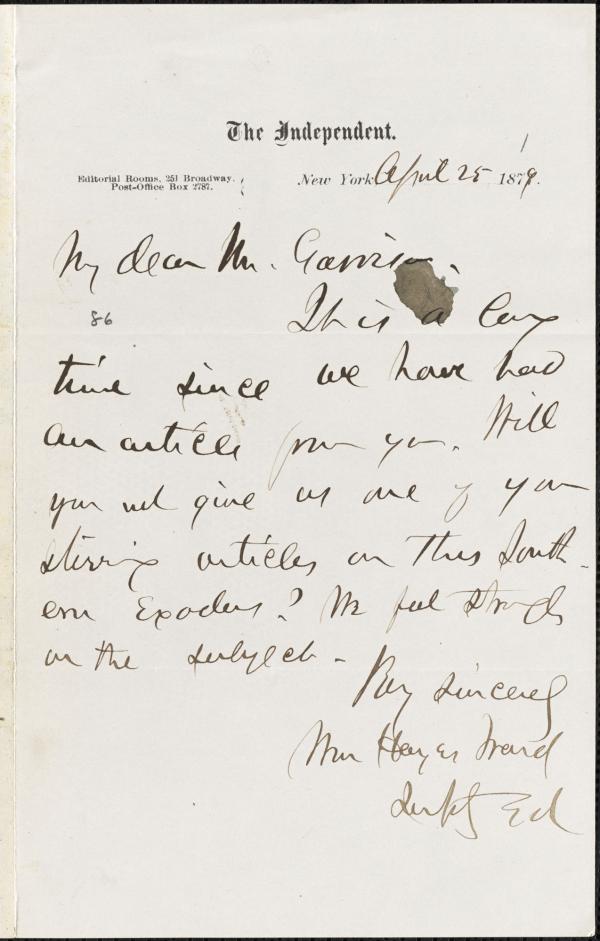 The Independent.
Editorial Rooms, 251 Broadway.
Post-Office Box 2787.
New York April 25 1879.
My dear Mr. Garrison.
86
It is a long
time since we have had
an article from you. Will
you not give us one of your
stirring articles on this South-
ern Exodus? We feel strongly
on the subject.
Very sincerely
Wm Hayes Ward
Ed